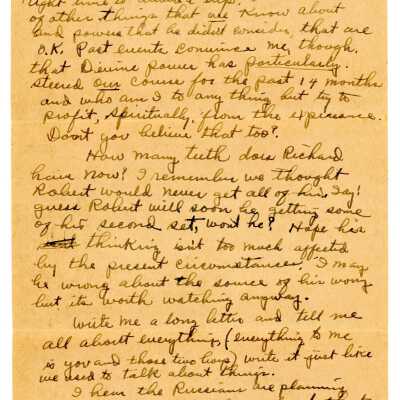 of other things that we know about
and powers that he didn't consider, that are
O.K. Past events convince me, though,
that Devine power has particularly
steered our course for the past 14 months
and who am I to any thing but try to
profit, spiritually, from the experience.
Don't you believe that too?
How many teeth does Richard
have now? I remember we thought
Robert would never get all of his. Say!
guess Robert will soon be getting some
of his second set, won't he? Hope his
thinking isn't too much affected
by the present circumstances. I may
be wrong about the source of his worry
but its worth watching anyway.
Write me a long letter and tell me
all about everything, (everything to me
is you and those two boys) write it just like
we used to talk about things.
I hear the Russians are planning